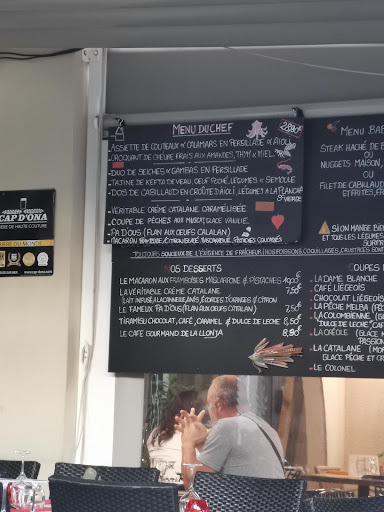 MENU DU CHEF
28,90€
- ASSIETTE DE COUTEAUX & CALAMARS EN PERSILLADE & AÏOLI
- CROQUANT DE CHEVRE FRAIS AUX AMANDES, THYM & MIEL
- DUO DE SEICHES & GAMBAS EN PERSILLADE
- TAJINE DE KEFTA DE VEAU, OEUF POCHÉ, LÉGUMES & SEMOULE
- DOS DE CABILLAUD EN CROÛTE D'AÏOLI, LÉGUMES A LA PLANCHA
- VERITABLE CRÈME CATALANE CARAMELISÉE
- COUPE DE PÊCHES AUX MUSCAT, GLACE VANILLE
- PA D'OUS (FLAN AUX OEUFS CATALAN)
MACARON
MENU BAB
STEAK HACHÉ DE B
OU
NUGGETS MAISON,
OU
FILET DE CABILLAUD
ET FRITES, FR
SI ON MANGE BIEN
ET TOUS LES LÉGUMES
SURPR
TOUJOURS SOUCIEUX DE L'EXIGENCE DE FRAÎCHEUR NOS POISSONS, COQUILLAGES, CRUSTACÉS SONT
NOS DESSERTS
LE MACARON AUX FRAMBOISES MASCARPONE & PISTACHES
LA VÉRITABLE CRÈME CATALANE 7,50€
(LAIT INFUSÉ A LA CANNELLE, ANIS, ÉCORCES D'ORANGES & CITRON
LE FAMEUX PA D'OUS (FLAN AUX OEUFS CATALAN) 7,50€
TIRAMISU CHOCOLAT, CAFÉ, CARAMEL & DULCE DE LECHE 8,50€
LE CAFE GOURMAND DE LA LLONJA 8,90€
COUPES
- LA DAME BLANCHE
- CAFÉ LIÉGEOIS
- CHOCOLAT LIÉGEOIS
- LA PÊCHE MELBA (PÊ
- LA COLOMBIENNE (G
"DULCE DE LECHE", CAF
- LA CRÉOLE (GLACE
PASSION
- LA CATALANE (MOR
GLACE PÊCHE ET CR
- LE COLONEL
CAP D'ONA
BIÈRE DE HAUTE COUTURE
BIÈRE DU MONDE